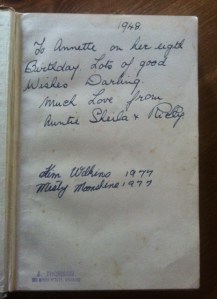 1948
To Annette on her eighth
Birthday. Lots of good
Wishes Darling.
Much Love from
Auntie Sheila &
Kim Wilkens 1977
Misty Moonshine 1977
J.